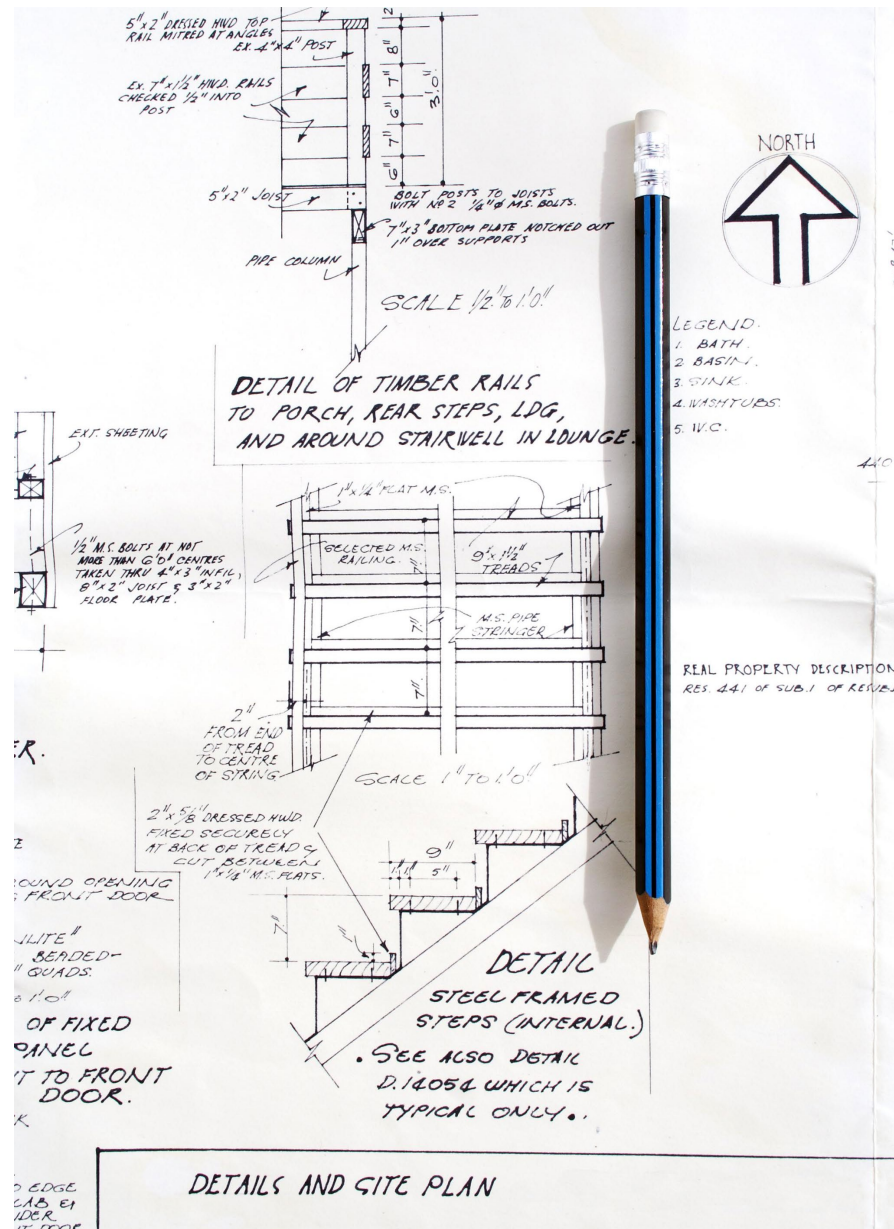 5"x2" DRESSED HWD TOP
RAIL MITRED AT ANGLES
EX. 4"x4" POST
EX. 7"x1½" HWD. RAILS
CHECKED ½" INTO
POST
2
8"
7"
6"
7"
6"
3'.0"
5"x2" JOIST
BOLT POSTS TO JOISTS
WITH No 2 ¼"ø M.S. BOLTS.
7"x3" BOTTOM PLATE NOTCHED OUT
1" OVER SUPPORTS
PIPE COLUMN
SCALE ½" TO 1'.0"
DETAIL OF TIMBER RAILS
TO PORCH, REAR STEPS, LDG,
AND AROUND STAIRWELL IN LOUNGE.
NORTH
LEGEND.
1. BATH.
2 BASIN.
3. SINK.
4. WASHTUBS.
5. W.C.
440
EXT. SHEETING
½" M.S. BOLTS AT NOT
MORE THAN 6'0" CENTRES
TAKEN THRU 4"x3" INFIL,
8"x2" JOIST & 3"x2"
FLOOR PLATE.
1"x¼" FLAT M.S.
SELECTED M.S.
RAILING.
9"x1½"
TREADS
7"
M.S. PIPE
STRINGER
7"
7"
2"
FROM END
OF TREAD
TO CENTRE
OF STRING
SCALE 1" TO 1'.0"
REAL PROPERTY DESCRIPTION
RES. 441 OF SUB.1 OF
2"x⅝" DRESSED HWD.
FIXED SECURELY
AT BACK OF TREAD &
CUT BETWEEN
1"x¼" M.S. FLATS.
9"
1"
1"
5"
7"
1"
DETAIL
STEEL FRAMED
STEPS (INTERNAL.)
. SEE ALSO DETAIL
D.14054 WHICH IS
TYPICAL ONLY..
ER.
OUND OPENING
FRONT DOOR
ILITE"
BEADED-
" QUADS.
1'.0"
OF FIXED
PANEL
T TO FRONT
DOOR.
EDGE
DETAILS AND SITE PLAN